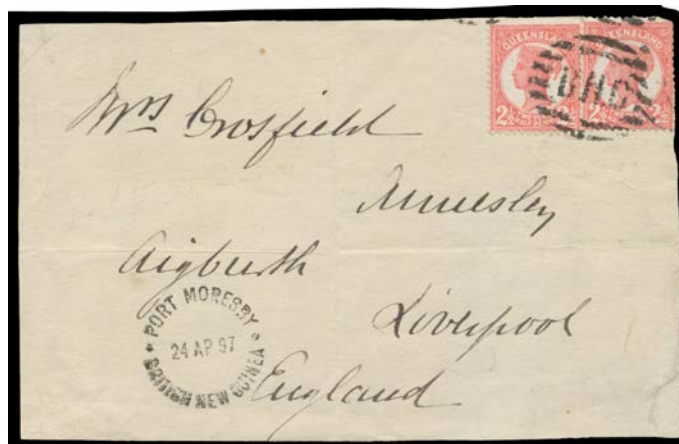 QUEENSLAND QUEENSLAND
BNG
2½ 2½ 2½ 2½
Mrs Crosfield
Annesley
Aigburth
Liverpool
England
PORT MORESBY
24 AP 97
BRITISH NEW GUINEA